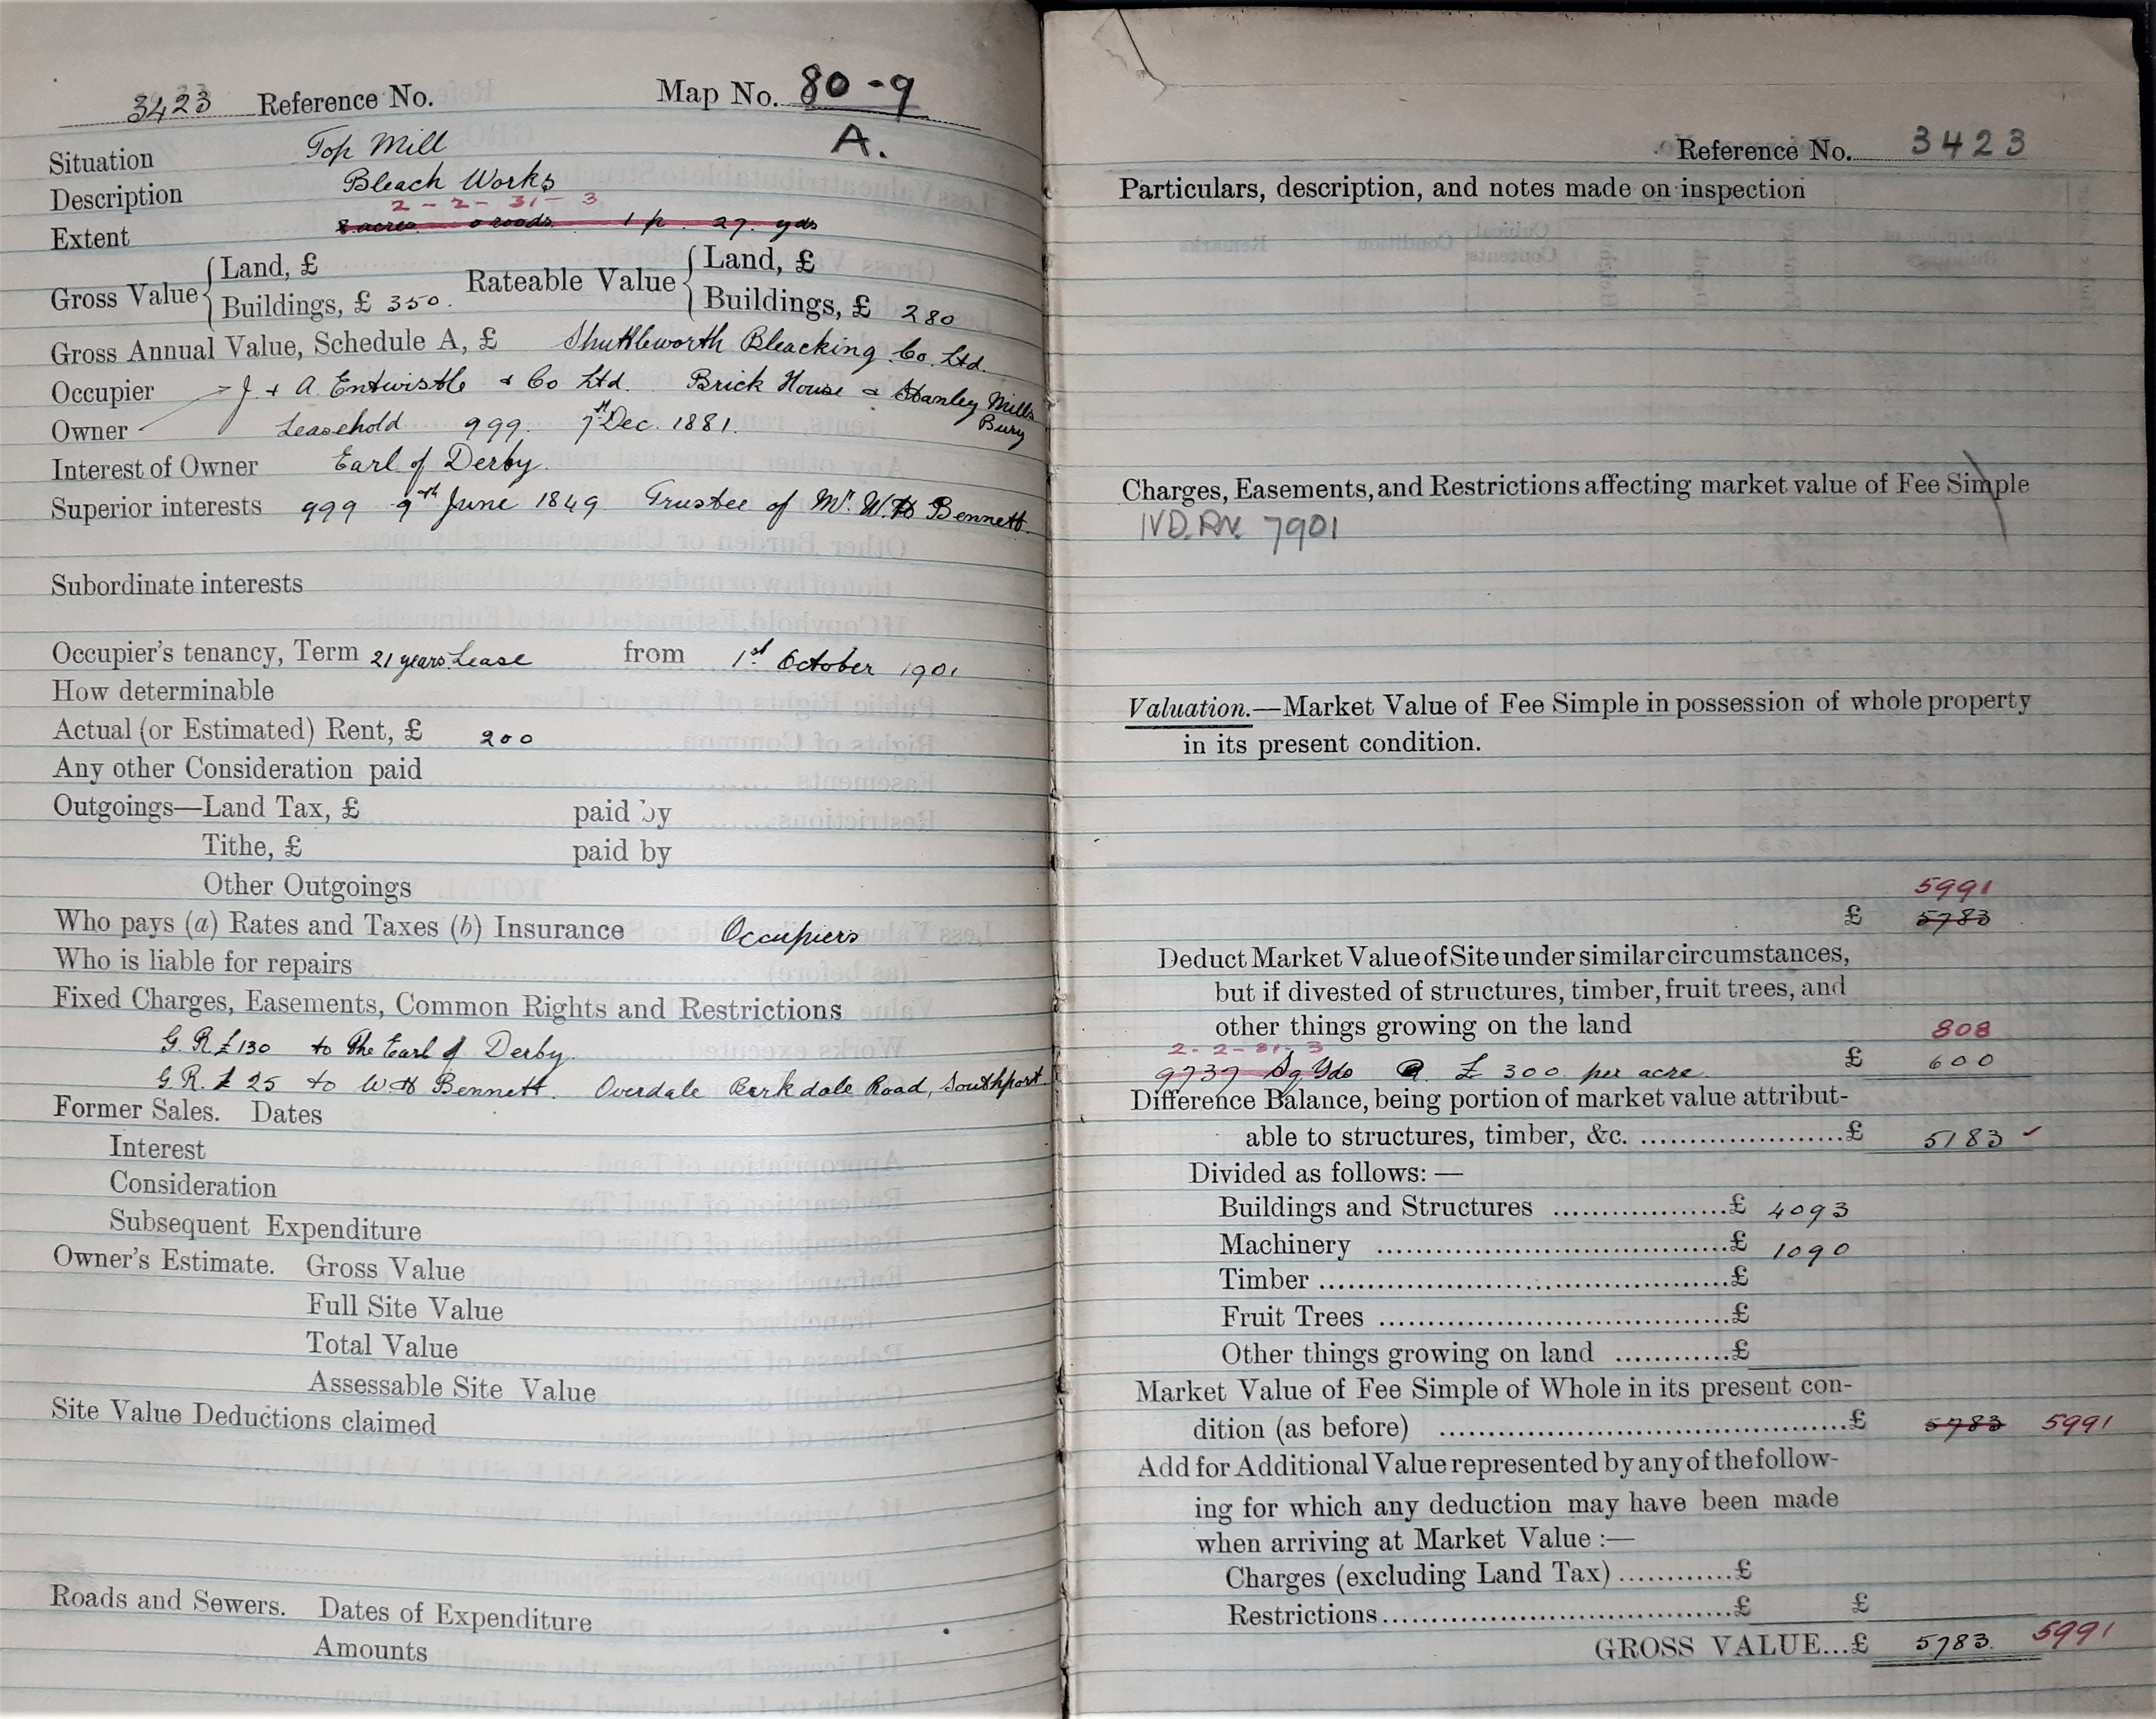 3423 Reference No. Map No. 80-9
A.
Situation Top Mill
Description Bleach Works
2 - 2 - 31 - 3
Extent 8 acres 0 roods 1 p. 27 yds
Gross Value { Land, £ Rateable Value { Land, £
Buildings, £ 350. Buildings, £ 280
Gross Annual Value, Schedule A, £ Shuttleworth Bleacking Co. Ltd.
Occupier J. & A. Entwistle & Co Ltd. Brick House & Stanley Mills
Bury
Owner Leasehold 999. 7th Dec. 1881.
Interest of Owner Earl of Derby.
Superior interests 999 9th June 1849 Trustee of Mr. W. H Bennett.
Subordinate interests
Occupier's tenancy, Term 21 years Lease from 1st October 1901
How determinable
Actual (or Estimated) Rent, £ 200
Any other Consideration paid
Outgoings—Land Tax, £ paid by
Tithe, £ paid by
Other Outgoings
Who pays (a) Rates and Taxes (b) Insurance Occupiers
Who is liable for repairs
Fixed Charges, Easements, Common Rights and Restrictions
G. R. £130 to The Earl of Derby.
G. R. £ 25 to W. H Bennett. Overdale Berkdale Road, Southport.
Former Sales. Dates
Interest
Consideration
Subsequent Expenditure
Owner's Estimate. Gross Value
Full Site Value
Total Value
Assessable Site Value
Site Value Deductions claimed
Roads and Sewers. Dates of Expenditure
Amounts
Reference No. 3423
Particulars, description, and notes made on inspection
Charges, Easements, and Restrictions affecting market value of Fee Simple
7901
Valuation.—Market Value of Fee Simple in possession of whole property
in its present condition.
5991
£ 5783
Deduct Market Value of Site under similar circumstances,
but if divested of structures, timber, fruit trees, and
other things growing on the land 808
2 - 2 - 31 - 3
9737 Sq Yds @ £ 300 per acre £ 600
Difference Balance, being portion of market value attribut-
able to structures, timber, &c. ........................£ 5183 ✓
Divided as follows: —
Buildings and Structures ..................£ 4093
Machinery ....................................£ 1090
Timber .........................................£
Fruit Trees ....................................£
Other things growing on land ............£
Market Value of Fee Simple of Whole in its present con-
dition (as before) ..........................................£ 5783 5991
Add for Additional Value represented by any of the follow-
ing for which any deduction may have been made
when arriving at Market Value :—
Charges (excluding Land Tax) ............£
Restrictions....................................£ £
GROSS VALUE...£ 5783. 5991